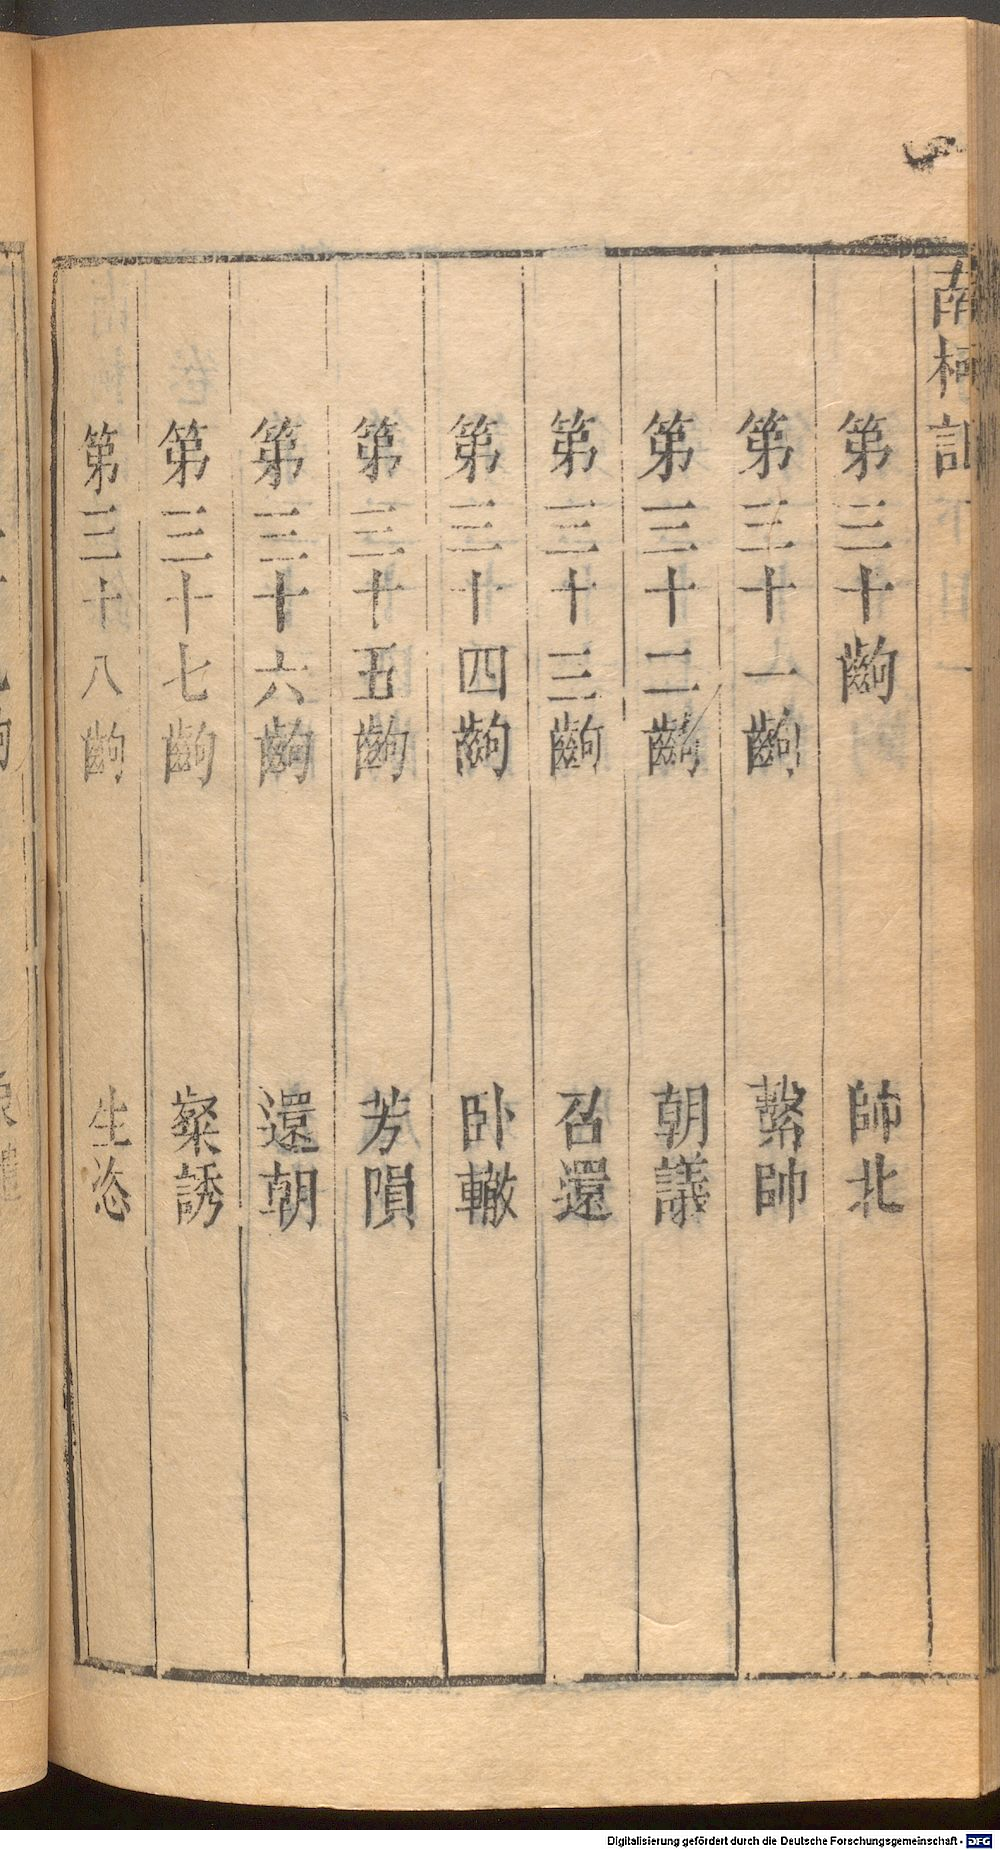 南柯記
第三十齣 帥北
第三十一齣 繫帥
第三十二齣 朝議
第三十三齣 召還
第三十四齣 卧轍
第三十五齣 芳隕
第三十六齣 還朝
第三十七齣 粲誘
第三十八齣 生恣
Digitalisierung gefördert durch die Deutsche Forschungsgemeinschaft - DFG